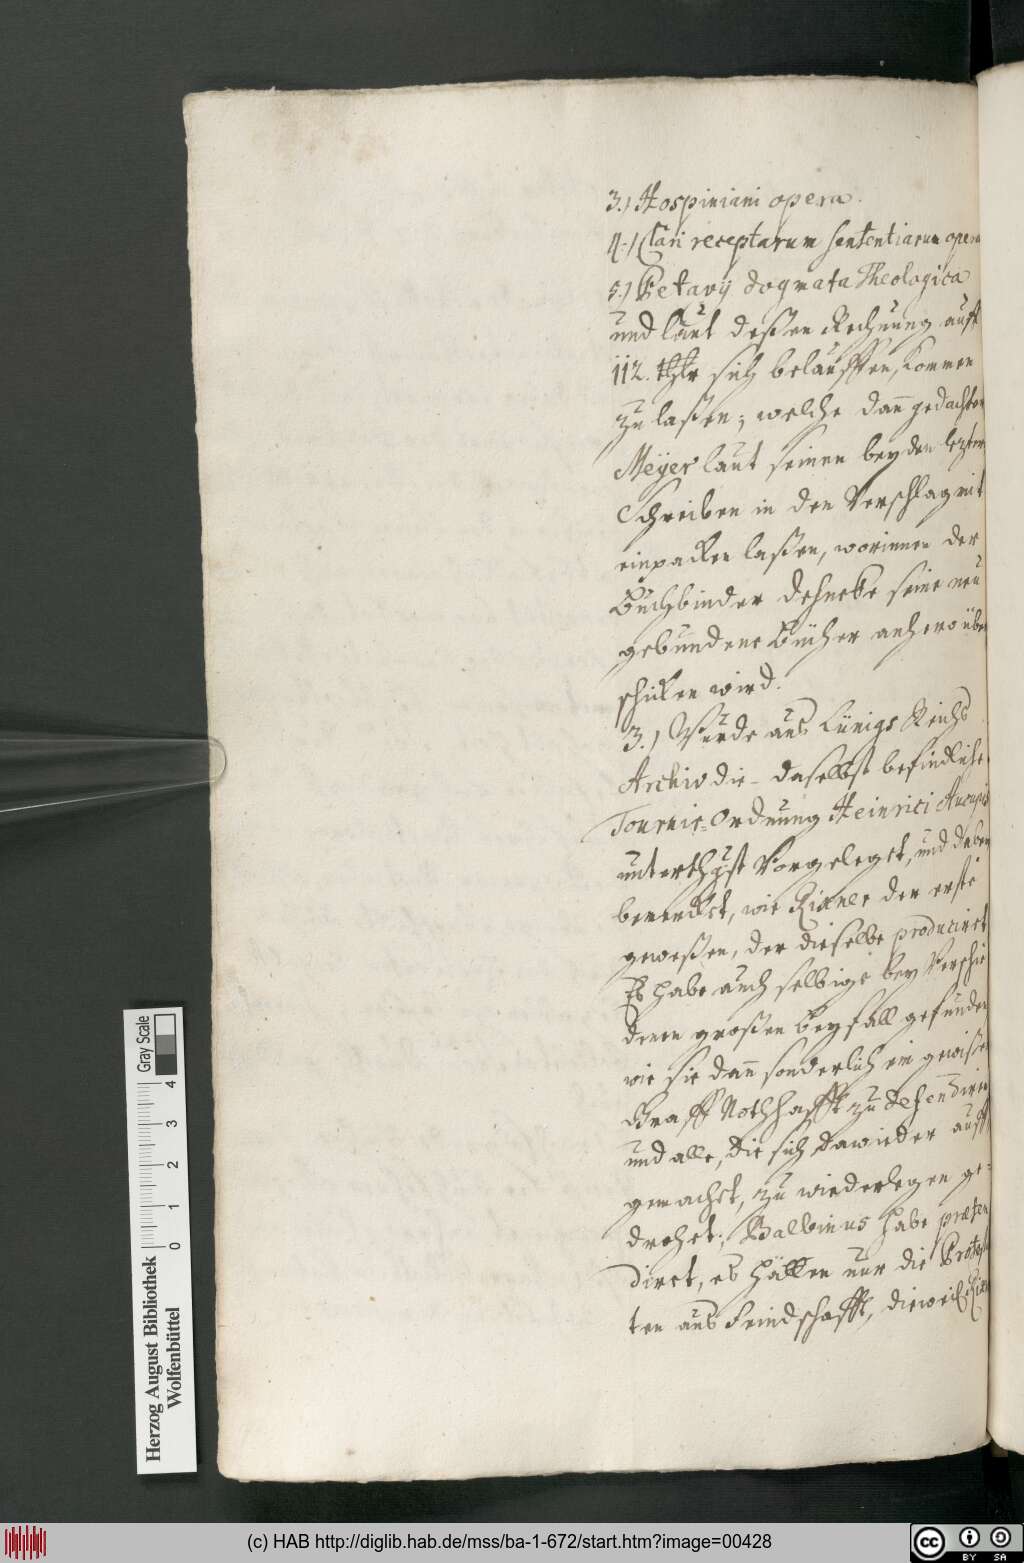 3.) Hospiniani opera.
4.) Clari receptarum sententiarum opera
5.) Petavij dogmata Theologica
und laut deßen Rechnung auff
112. thlr sich belauffen, kommen
zu laßen; welche dann gedachter
Meÿer laut seinen beyden letztern
Schreiben in den Verschlag mit
einpacken laßen, worinnen der
Buchbinder Dehneke seine neu
gebundene Bücher anhero über
schicken wird.
3.) Wurde aus Lünigs Reichs
Archiv die - daselbst befindliche
Tournier-Ordnung Heinrici Aucupis
unterthgst vorgeleget, und dabey
bemercket, wie Rixner der erste
geweßen, der dieselbe producirct
Es habe auch selbige bey Verschie
denen großen beyfall gefunden
wie sie dann sonderlich ein gewißer
Graff Nothhafft zu defendiren
und alle, die sich dawieder auff
gemachet, zu wiederlegen ge-
drohet; Balbinus habe præten
diret, es hätten nur die Protestan
ten aus Feindschafft, dieweil
Herzog August Bibliothek
Wolfenbüttel
0 1 2 3 4
Gray Scale
(c) HAB http://diglib.hab.de/mss/ba-1-672/start.htm?image=00428
cc BY SA